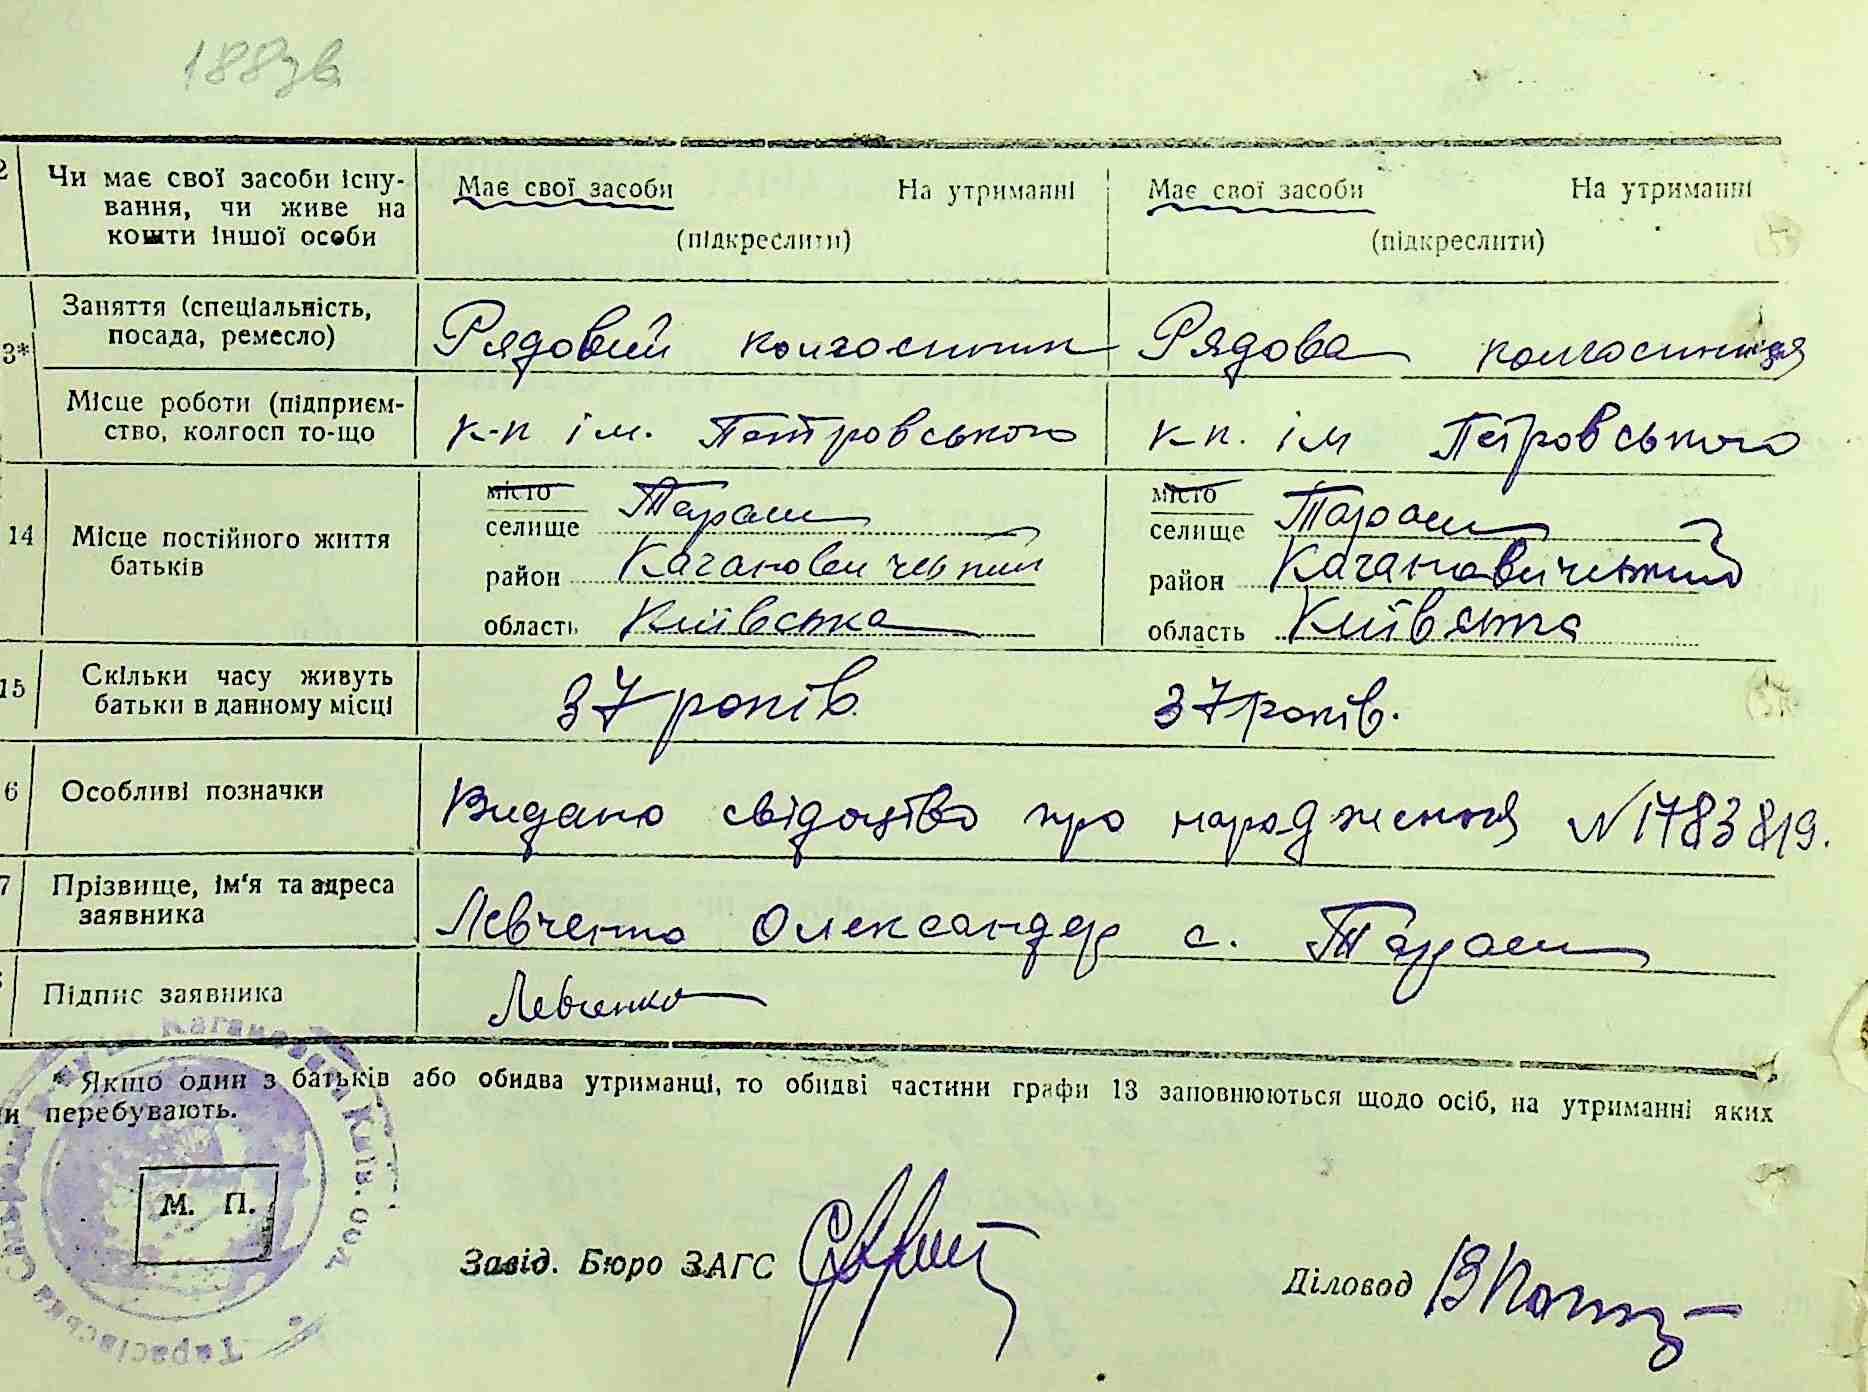 188зв
2 Чи має свої засоби існу-
вання, чи живе на
кошти іншої особи
Має свої засоби На утриманні
(підкреслити)
Має свої засоби На утриманні
(підкреслити)
3* Заняття (спеціальність,
посада, ремесло)
Рядовий колгоспник
Рядова колгоспниця
Місце роботи (підприєм-
ство, колгосп то-що
к-п ім. Петровського
к-п. ім Петровського
14 Місце постійного життя
батьків
місто
селище Тараси
район Кагановичський
область Київська
місто
селище Тараси
район Кагановичський
область Київська
15 Скільки часу живуть
батьки в данному місці
37 років.
37 років.
6 Особливі позначки
Видано свідоцтво про народження №1783819.
7 Прізвище, ім'я та адреса
заявника
Левченко Олександр с. Тараси
Підпис заявника
Левченко
* Якщо один з батьків або обидва утриманці, то обидві частини графи 13 заповнюються щодо осіб, на утриманні яких
и перебувають.
М. П.
Тарасівська Кагано Київ. обл
Завід. Бюро ЗАГС
Діловод